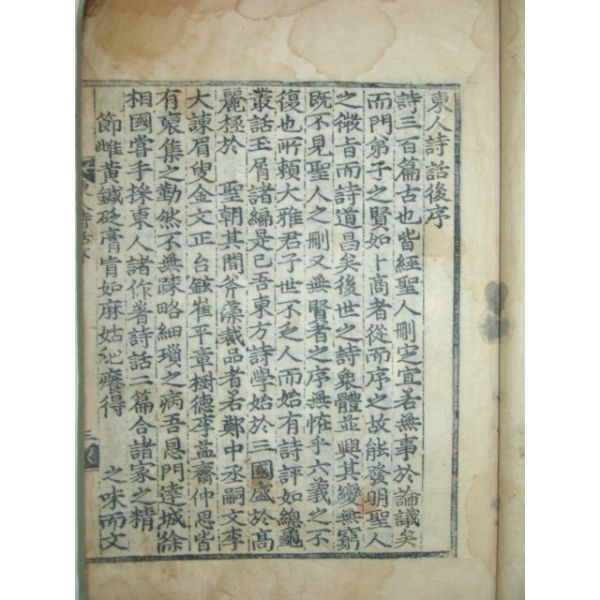 東人詩話後序
詩三百篇古也皆經聖人刪定宜若無事於論議矣
而門弟子之賢如卜商者從而序之故能發明聖人
之微旨而詩道昌矣後世之詩衆體並興其變無窮
既不見聖人之刪又無賢者之序無恠乎六義之不
復也所賴大雅君子世不乏人而始有詩評如總龜
叢話玉屑諸編是已吾東方詩學始於三國盛於高
麗極於 聖朝其間斧藻裁品者若鄭中丞嗣文李
大諫眉叟金文正台鉉崔平章樹德李益齋仲思皆
有裒集之勤然不無踈略細瑣之病吾恩門達城徐
相國嘗手採東人諸作著詩話二篇合諸家之精
節雌黃鍼砭膏肓如麻姑爬癢得 之味而文
三